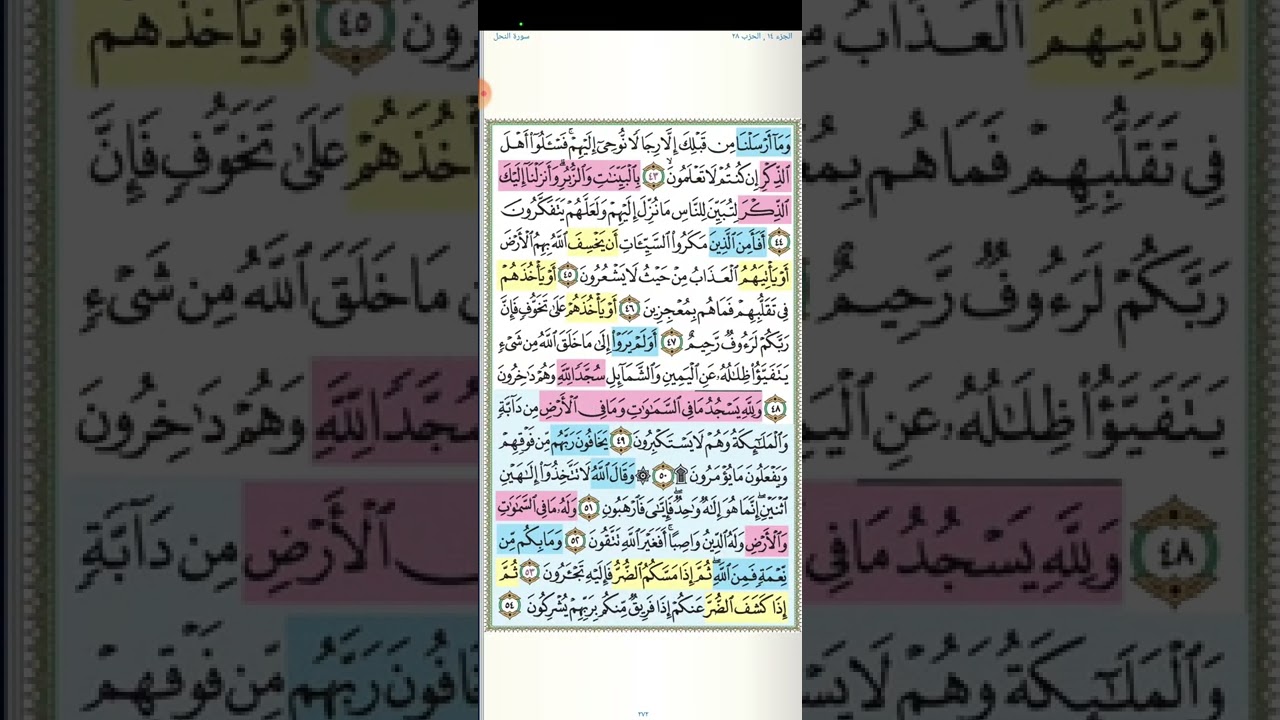 الجزء ١٤ , الحزب ٢٨
سورة النحل
وَمَآ أَرْسَلْنَا مِن قَبْلِكَ إِلَّا رِجَالًا نُّوحِىٓ إِلَيْهِمْ ۚ فَسْـَٔلُوٓا۟ أَهْلَ
ٱلذِّكْرِ إِن كُنتُمْ لَا تَعْلَمُونَ ٤٣ بِٱلْبَيِّنَـٰتِ وَٱلزُّبُرِ ۗ وَأَنزَلْنَآ إِلَيْكَ
ٱلذِّكْرَ لِتُبَيِّنَ لِلنَّاسِ مَا نُزِّلَ إِلَيْهِمْ وَلَعَلَّهُمْ يَتَفَكَّرُونَ
٤٤ أَفَأَمِنَ ٱلَّذِينَ مَكَرُوا۟ ٱلسَّيِّـَٔاتِ أَن يَخْسِفَ ٱللَّهُ بِهِمُ ٱلْأَرْضَ
أَوْ يَأْتِيَهُمُ ٱلْعَذَابُ مِنْ حَيْثُ لَا يَشْعُرُونَ ٤٥ أَوْ يَأْخُذَهُمْ
فِى تَقَلُّبِهِمْ فَمَا هُم بِمُعْجِزِينَ ٤٦ أَوْ يَأْخُذَهُمْ عَلَىٰ تَخَوُّفٍ فَإِنَّ
رَبَّكُمْ لَرَءُوفٌ رَّحِيمٌ ٤٧ أَوَلَمْ يَرَوْا۟ إِلَىٰ مَا خَلَقَ ٱللَّهُ مِن شَىْءٍ
يَتَفَيَّؤُا۟ ظِلَـٰلُهُۥ عَنِ ٱلْيَمِينِ وَٱلشَّمَآئِلِ سُجَّدًا لِّلَّهِ وَهُمْ دَٰخِرُونَ
٤٨ وَلِلَّهِ يَسْجُدُ مَا فِى ٱلسَّمَـٰوَٰتِ وَمَا فِى ٱلْأَرْضِ مِن دَآبَّةٍ
وَٱلْمَلَـٰٓئِكَةُ وَهُمْ لَا يَسْتَكْبِرُونَ ٤٩ يَخَافُونَ رَبَّهُم مِّن فَوْقِهِمْ
وَيَفْعَلُونَ مَا يُؤْمَرُونَ ۩ ٥٠ ۞ وَقَالَ ٱللَّهُ لَا تَتَّخِذُوٓا۟ إِلَـٰهَيْنِ
ٱثْنَيْنِ ۖ إِنَّمَا هُوَ إِلَـٰهٌ وَٰحِدٌ ۖ فَإِيَّـٰىَ فَٱرْهَبُونِ ٥١ وَلَهُۥ مَا فِى ٱلسَّمَـٰوَٰتِ
وَٱلْأَرْضِ وَلَهُ ٱلدِّينُ وَاصِبًا ۚ أَفَغَيْرَ ٱللَّهِ تَتَّقُونَ ٥٢ وَمَا بِكُم مِّن
نِّعْمَةٍ فَمِنَ ٱللَّهِ ۖ ثُمَّ إِذَا مَسَّكُمُ ٱلضُّرُّ فَإِلَيْهِ تَجْـَٔرُونَ ٥٣ ثُمَّ
إِذَا كَشَفَ ٱلضُّرَّ عَنكُمْ إِذَا فَرِيقٌ مِّنكُم بِرَبِّهِمْ يُشْرِكُونَ ٥٤
٢٧٢